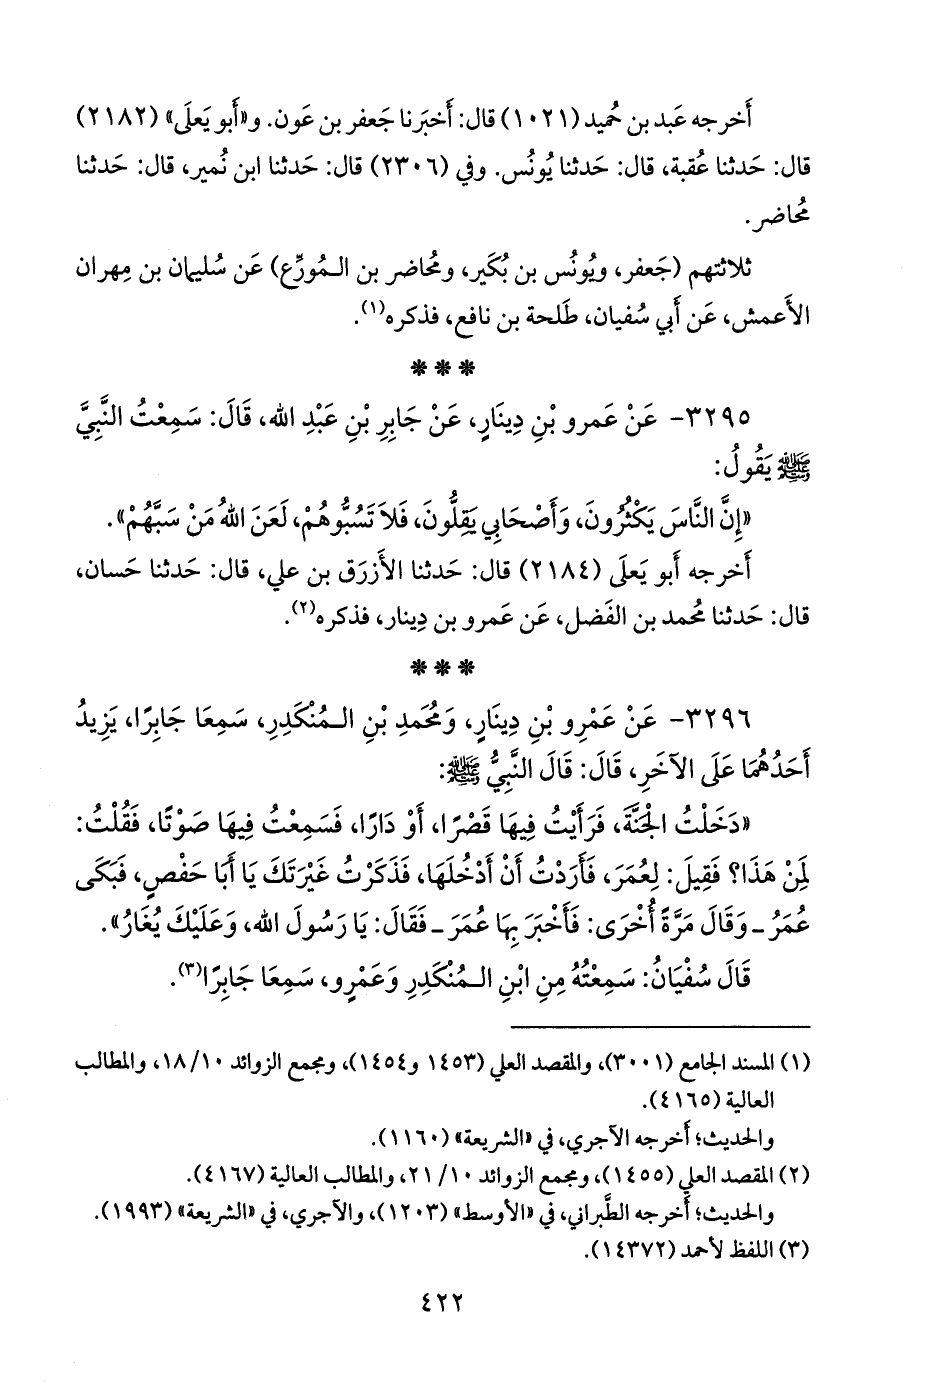 أَخرجه عَبد بن حُميد (١٠٢١) قال: أَخبَرنا جَعفر بن عَون. و«أَبو يَعلَى» (٢١٨٢)
قال: حَدثنا عُقبة، قال: حَدثنا يُونُس. وفي (٢٣٠٦) قال: حَدثنا ابن نُمير، قال: حَدثنا
مُحاضر.
ثلاثتهم (جَعفر، ويُونُس بن بُكَير، ومُحاضر بن الـمُورِّع) عَن سُليمان بن مِهران
الأَعمش، عَن أَبي سُفيان، طَلحة بن نافع، فذكره(١).
***
٣٢٩٥- عَنْ عَمرو بْنِ دِينَارٍ، عَنْ جَابِرِ بْنِ عَبْدِ الله، قَالَ: سَمِعْتُ النَّبِيَّ
ﷺ يَقُولُ:
«إِنَّ النَّاسَ يَكْثُرُونَ، وَأَصْحَابِي يَقِلُّونَ، فَلاَ تَسُبُّوهُمْ، لَعَنَ اللهُ مَنْ سَبَّهُمْ».
أَخرجه أَبو يَعلَى (٢١٨٤) قال: حَدثنا الأَزرَق بن علي، قال: حَدثنا حَسان،
قال: حَدثنا مُحمد بن الفَضل، عَن عَمرو بن دِينار، فذكره(٢).
***
٣٢٩٦- عَنْ عَمْرِو بْنِ دِينَارٍ، وَمُحَمدِ بْنِ الـمُنْكَدِرِ، سَمِعَا جَابِرًا، يَزِيدُ
أَحَدُهُمَا عَلَى الآخَرِ، قَالَ: قَالَ النَّبِيُّ ﷺ:
«دَخَلْتُ الجَنَّةَ، فَرَأَيْتُ فِيهَا قَصْرًا، أَوْ دَارًا، فَسَمِعْتُ فِيهَا صَوْتًا، فَقُلْتُ:
لِمَنْ هَذَا؟ فَقِيلَ: لِعُمَرَ، فَأَرَدْتُ أَنْ أَدْخُلَهَا، فَذَكَرْتُ غَيْرَتَكَ يَا أَبَا حَفْصٍ، فَبَكَى
عُمَرُ ـ وَقَالَ مَرَّةً أُخْرَى: فَأَخْبَرَ بِهَا عُمَرَ ـ فَقَالَ: يَا رَسُولَ الله، وَعَلَيْكَ يُغَارُ».
قَالَ سُفْيَانُ: سَمِعْتُهُ مِنِ ابْنِ الـمُنْكَدِرِ وَعَمْرٍو، سَمِعَا جَابِرًا(٣).
(١) المسند الجامع (٣٠٠١)، والمقصد العلي (١٤٥٣ و١٤٥٤)، ومجمع الزوائد ١٠/ ١٨، والمطالب
العالية (٤١٦٥).
والحديث؛ أَخرجه الآجري، في «الشريعة» (١١٦٠).
(٢) المقصد العلي (١٤٥٥)، ومجمع الزوائد ١٠/ ٢١، والمطالب العالية (٤١٦٧).
والحديث؛ أَخرجه الطَّبراني، في «الأوسط» (١٢٠٣)، والآجري، في «الشريعة» (١٩٩٣).
(٣) اللفظ لأحمد (١٤٣٧٢).
٤٢٢